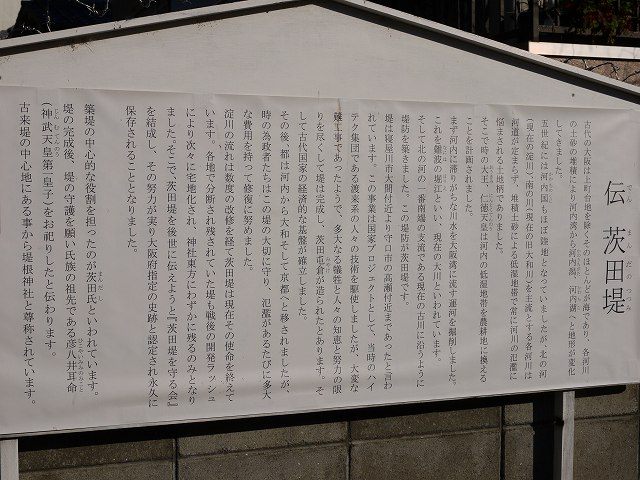 伝 茨田堤
でん まつたつつみ
古代の大阪は上町台地を除くそのほとんどが海であり、各河川
の土砂の堆積により河内湾から河内潟、河内湖へと地形が変化
してきました。
五世紀には河内国もほぼ陸地となっていましたが、北の河
(現在の淀川)、南の川(現在の旧大和川)を主流とする各河川は
河道が定まらず、堆積土砂による低湿地帯で常に河川の氾濫に
悩まされる土地柄でありました。
そこで時の大王、仁徳天皇は河内の低湿地帯を農耕地に換える
ことを計画されました。
まず河内に滞りがちな川水を大阪湾に流す運河を掘削しました。
これを難波の堀江といい、現在の大川といわれています。
そして北の河の一番南端の支流である現在の古川に沿うように
堤防を築きました。この堤防が茨田堤です。
堤は寝屋川市大間付近より守口市の高瀬付近まであったと言わ
れています。この事業は国家プロジェクトとして、当時のハイ
テク集団である渡来系の人々の技術を駆使しましたが、大変な
難工事であったようで、多大なる犠牲と人々の知恵と努力の限
りを尽くして堤は完成し、茨田屯倉が造られたとあります。そ
して古代国家の経済的な基盤が確立しました。
その後、都は河内から大和そして京都へと移されましたが、
時の為政者たちはこの堤の大切に守り、氾濫があるたびに多大
な費用を持って修復に努めました。
淀川の流れは数度の改修を経て茨田堤は現在その使命を終えて
います。各地で分断され残されていた堤も戦後の開発ラッシュ
により次々に宅地化され、神社東方にわずかに残るのみとなり
ました。そこで、茨田堤を後世に伝えようと『茨田堤を守る会』
を結成し、その努力が実り大阪府指定の史跡と認定され永久に
保存されることとなりました。
築堤の中心的な役割を担ったのが茨田氏といわれています。
まんだし
堤の完成後、堤の守護を願い氏族の祖先である彦八井耳命
ひこやいみみのみこと
(神武天皇第一皇子)をお祀りしたと伝わります。
じんむてんのう
古来堤の中心地にある事から堤根神社と尊称されています。